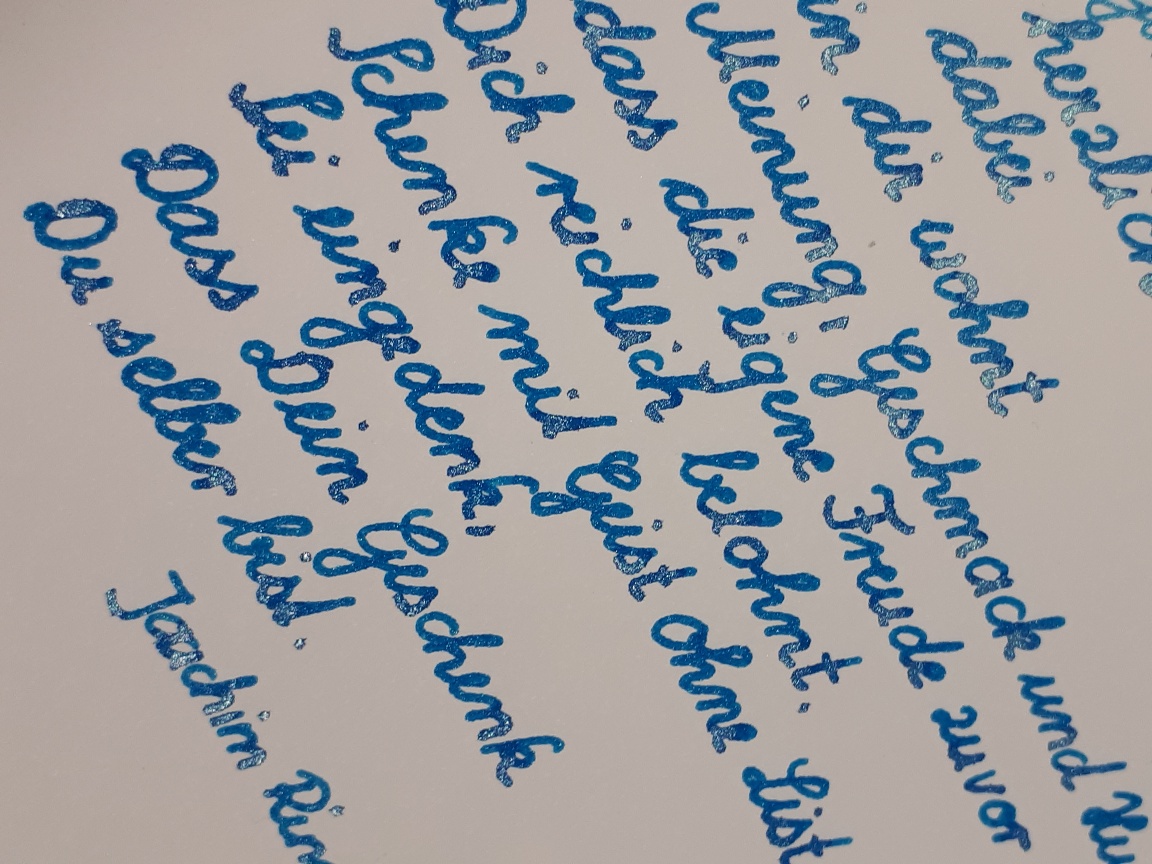 herzlic
dabei
in dir wohnt
Meinung, Geschmack und Hu
dass die eigene Freude zuvor
Dich reichlich belohnt.
Schenke mit Geist ohne List
Sei eingedenk,
Dass Dein Geschenk
Du selber bist.
Joachim Rin